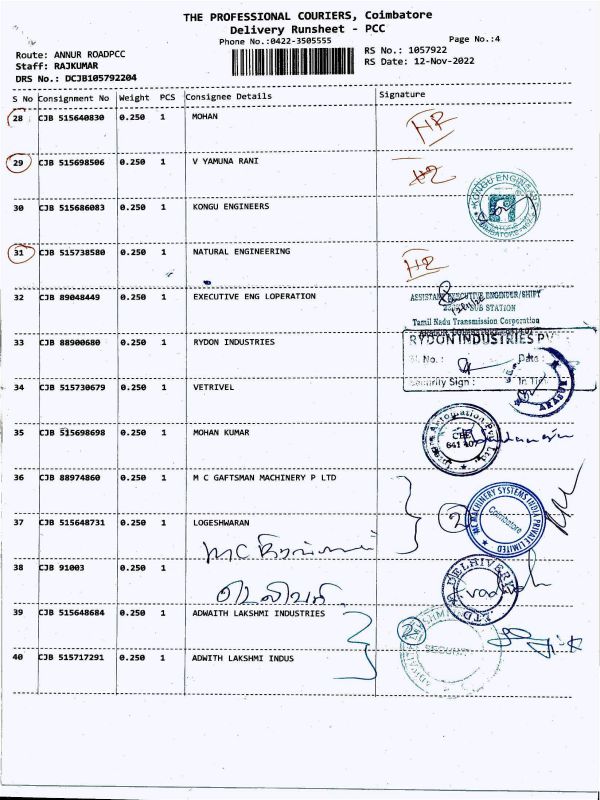 THE PROFESSIONAL COURIERS, Coimbatore
Delivery Runsheet - PCC
Phone No.:0422-3505555
Page No.:4
Route: ANNUR ROADPCC
RS No.: 1057922
Staff: RAJKUMAR
RS Date: 12-Nov-2022
DRS No.: DCJB105792204
S No Consignment No Weight PCS Consignee Details Signature
28 CJB 515640830 0.250 1 MOHAN
29 CJB 515698506 0.250 1 V YAMUNA RANI
30 CJB 515686083 0.250 1 KONGU ENGINEERS
31 CJB 515738580 0.250 1 NATURAL ENGINEERING
32 CJB 89048449 0.250 1 EXECUTIVE ENG LOPERATION
ASSISTANT EXECUTIVE ENGINEER/SHIFT
SUB STATION
Tamil Nadu Transmission Corporation
33 CJB 88900680 0.250 1 RYDON INDUSTRIES
RYDON INDUSTRIES PV
Sl. No.: Date:
Security Sign: In Tim
34 CJB 515730679 0.250 1 VETRIVEL
35 CJB 515698698 0.250 1 MOHAN KUMAR
CBE
641 407
36 CJB 88974860 0.250 1 M C GAFTSMAN MACHINERY P LTD
MC MACHINERY SYSTEMS INDIA PRIVATE LIMITED
Coimbatore
37 CJB 515648731 0.250 1 LOGESHWARAN
2
38 CJB 91003 0.250 1
DELHIVERY LTD
39 CJB 515648684 0.250 1 ADWAITH LAKSHMI INDUSTRIES
2
SECURIT
40 CJB 515717291 0.250 1 ADWITH LAKSHMI INDUS